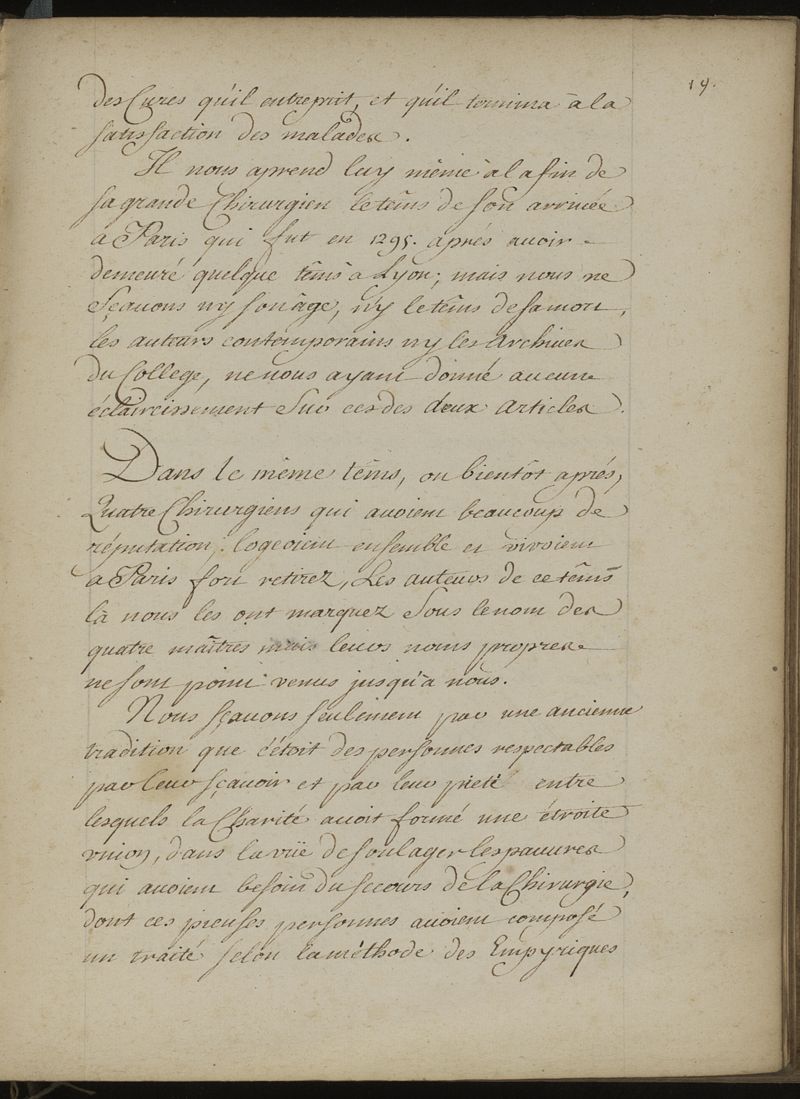 19.
des Cures qu'il entreprit, et qu'il termina à la
satisfaction des malades.
Il nous aprend luy même à la fin de
sa grande Chirurgien le têms de son arriuée
a Paris qui fut en 1295. aprés auoir
demeuré quelque têms à Lyon; mais nous ne
sçauons ny son âge, ny le têms de sa mort,
les auteurs contemporains ny les Archiues
du College, ne nous ayant donné aucun
éclaircissement sur ces des deux articles.
Dans le même têms, ou bientôt aprés,
Quatre Chirurgiens qui auoient beaucoup de
réputation, logeoient ensemble et vivoient
a Paris fort retirez, Les auteurs de ce têms
là nous les ont marquez sous le nom des
quatre maîtres mais leurs noms propres
ne sont point venus jusqu'à nous.
Nous sçauons seulement par une ancienne
tradition que c'étoit des personnes respectables
par leur sçauoir et par leur pieté entre
lesquels la Charité auoit formé une étroite
vnion, dans la vüe de soulager les pauures
qui auoient besoin du secours de la Chirurgie,
dont ces pieuses personnes auoient composé
un traité selon la méthode des Empyriques